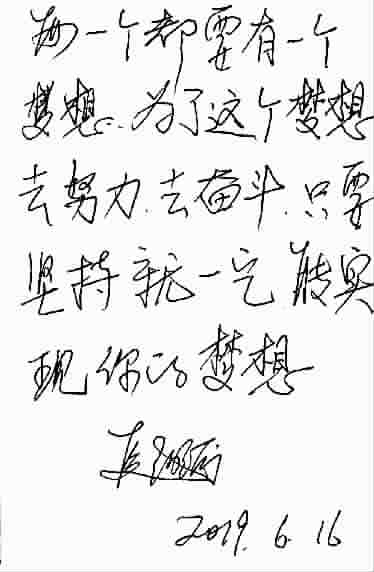 每一个都要有一个
梦想.为了这个梦想
去努力.去奋斗.只要
坚持就一定能实
现你的梦想
2019.6.16